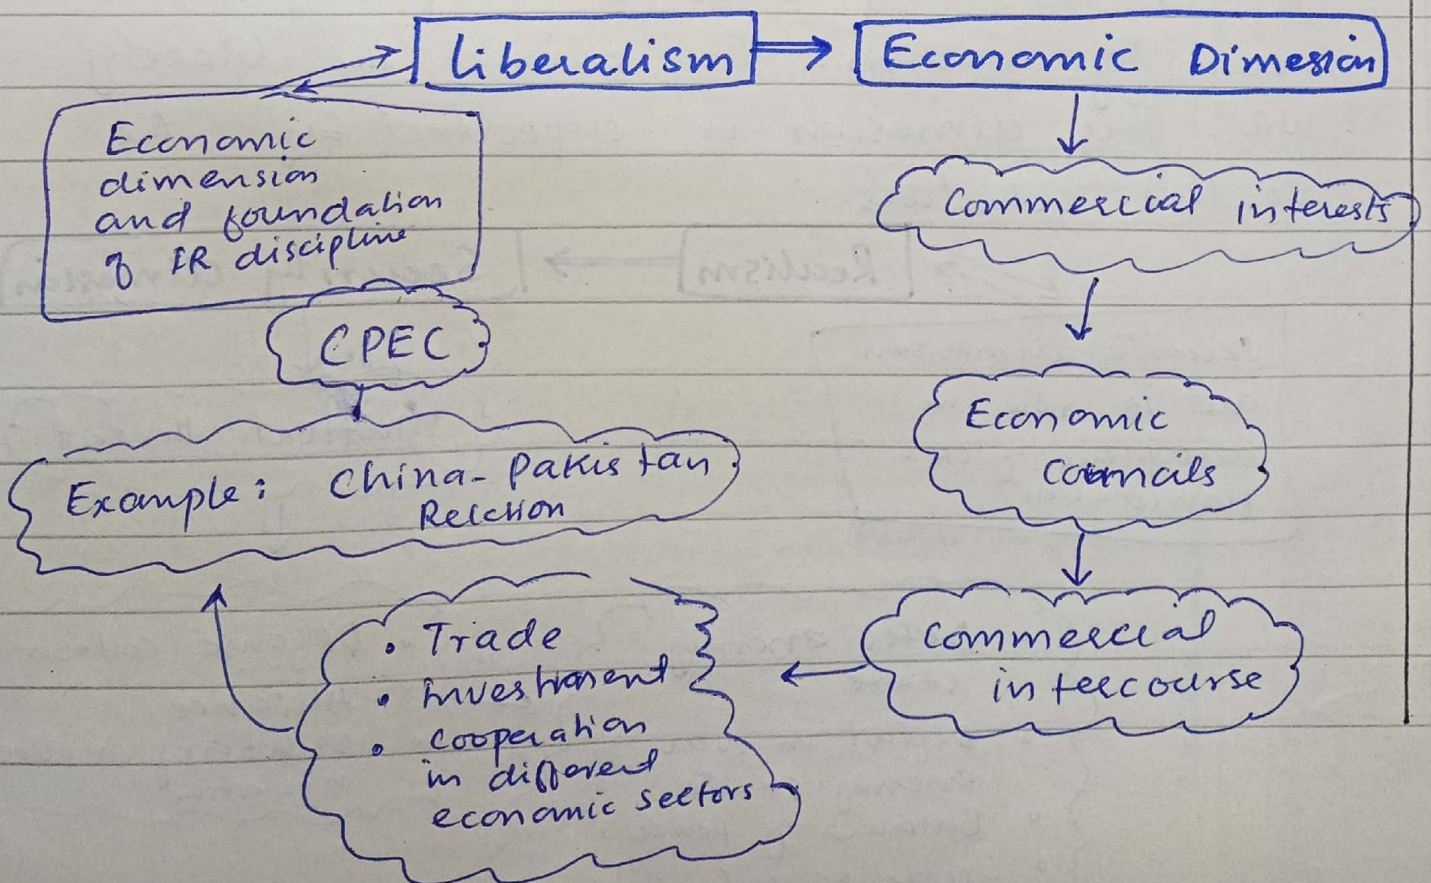 liberalism
Economic Dimesion
Economic
dimension
and foundation
of IR discipline
Commercial interests
CPEC
Economic
Councils
Example: China-Pakistan
Relction
Commeecial
intercourse
• Trade
• investment
• cooperation
in different
economic sectors
Realism